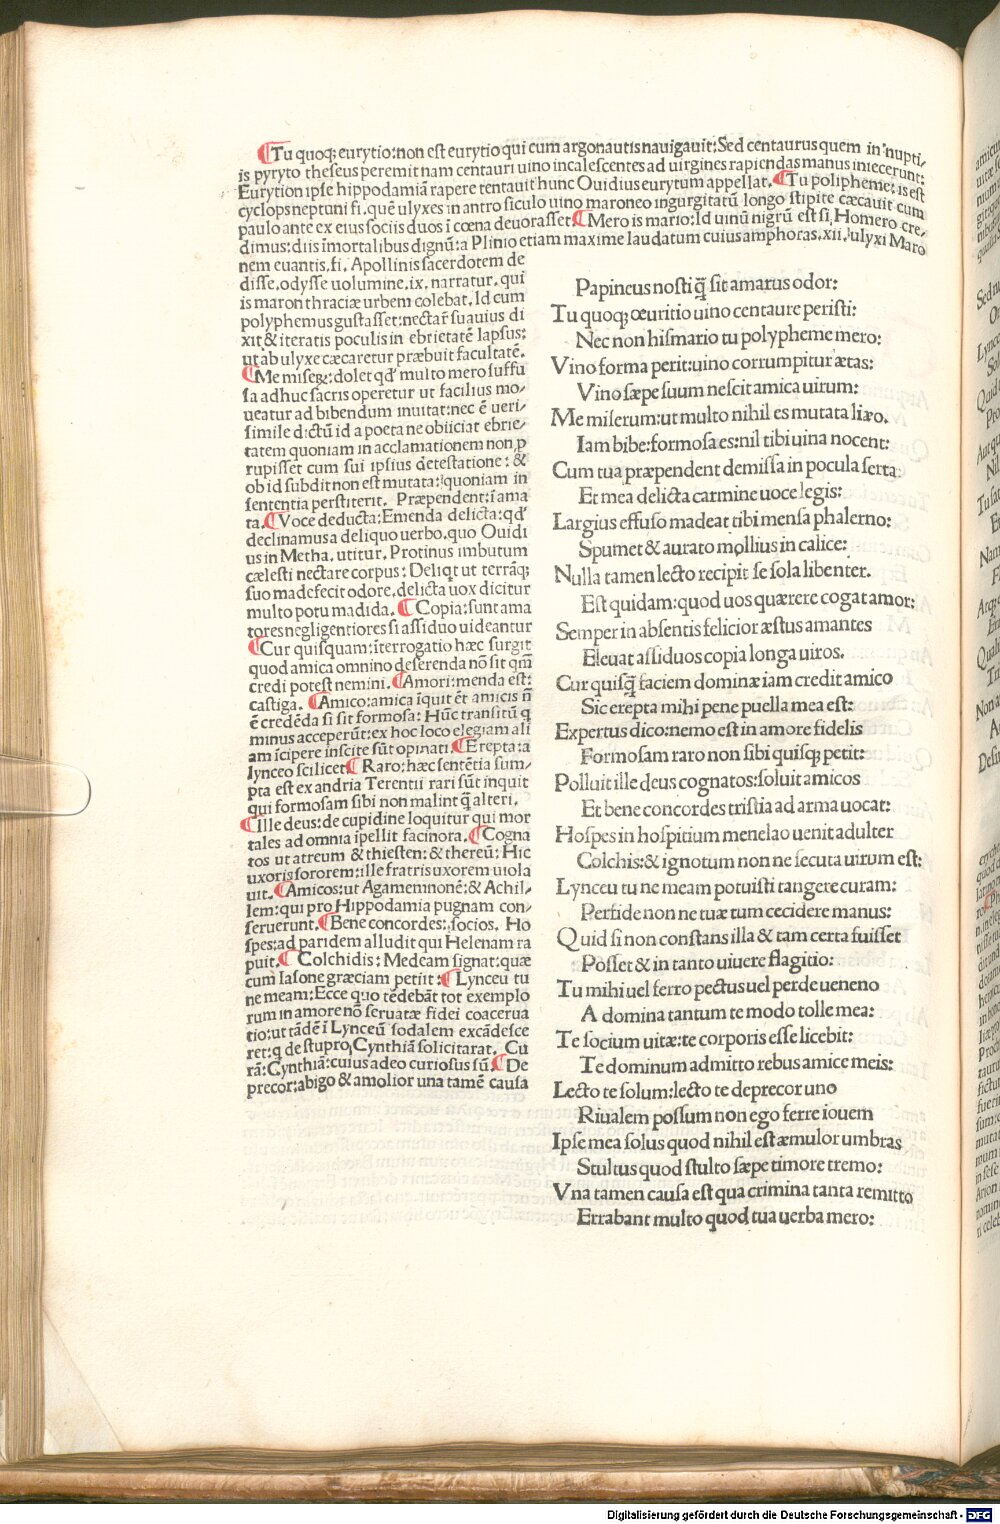 ¶Tu quoq; eurytio:non est eurytio qui cum argonautis nauigauit:Sed centaurus quem in nupti/
is pyryto theseus peremit nam centauri uino incalescentes ad uirgines rapiendas manus iniecerunt:
Eurytion ipse hippodamiā rapere tentauit hunc Ouidius eurytum appellat. ¶Tu polipheme: is est
cyclops neptuni fi. quē ulyxes in antro siculo uino maroneo ingurgitatū longo stipite cæcauit cum
paulo ante ex eius sociis duos ī cœna deuorasset ¶Mero ismario: Id uinū nigrū est si Homero cre/
dimus: diis īmortalibus dignū: a Plinio etiam maxime laudatum cuius amphoras.xii. ulyxi Maro
nem euantis.fi. Apollinis sacerdotem de
disse.odysse uolumine.ix. narratur. qui
is maron thraciæ urbem colebat. Id cum
polyphemus gustasset:nectar suauius di
xit & iteratis poculis in ebrietatē lapsus:
ut ab ulyxe cæcaretur præbuit facultatē.
¶Me miserum: dolet qd' multo mero suffu
sa adhuc sacris operetur ut facilius mo/
ueatur ad bibendum inuitat:nec ē ueri/
simile dictū id a poeta ne obiiciat ebrie/
tatem quoniam in acclamationem non p
rupisset cum sui ipsius detestatione: &
ob id subdit non est mutata: quoniam in
sententia perstiterit. Præpendent: ī ama
ta. ¶Voce deducta: Emenda delicta: qd'
declinamus a deliquo uerbo.quo Ouidi
us in Metha. utitur. Protinus imbutum
cælesti nectare corpus: Deliqt ut terrāq;
suo madefecit odore.delicta uox dicitur
multo potu madida. ¶Copia: sunt ama
tores negligentiores si assiduo uideantur
¶Cur quisquam: īterrogatio hæc surgit
quod amica omnino deserenda nō sit qm̄
credi potest nemini. ¶Amori: menda est:
castiga. ¶Amico: amica īquit ēt amicis n̄
ē credēda si sit formosa: Hūc transitū q
minus acceperūt: ex hoc loco elegiam ali
am īcipere inscite sūt opinati ¶Erepta: a
lynceo scilicet ¶Raro: hæc sentētia sum/
pta est ex andria Terentii rari sūt inquit
qui formosam sibi non malint q̄ alteri.
¶Ille deus: de cupidine loquitur qui mor
tales ad omnia īpellit facinora. ¶Cogna
tos ut atreum & thiesten: & thereū: Hic
uxoris sororem: ille fratris uxorem uiola
uit. ¶Amicos: ut Agamemnonē: & Achil/
lem: qui pro Hippodamia pugnam con/
seruerunt. ¶Bene concordes: socios. Ho
spes: ad paridem alludit qui Helenam ra
puit. ¶Colchidis: Medeam signat: quæ
cum Iasone græciam petiit: ¶Lynceu tu
ne meam: Ecce quo tēdebāt tot exemplo
rum in amore nō seruatæ fidei coacerua
tio: ut tādē ī Lynceū sodalem excādesce
ret: q de stupro Cynthiā solicitarat. Cu
rā: Cynthiā: cuius adeo curiosus sū: ¶De
precor: abigo & amolior una tamē causa
Papineus nosti q̄ sit amarus odor:
Tu quoq; œuritio uino centaure peristi:
Nec non hismario tu polypheme mero:
Vino forma perit:uino corrumpitur ætas:
Vino sæpe suum nescit amica uirum:
Me miserum:ut multo nihil es mutata liæo.
Iam bibe:formosa es:nil tibi uina nocent:
Cum tua præpendent demissa in pocula serta:
Et mea delicta carmine uoce legis:
Largius effuso madeat tibi mensa phalerno:
Spumet & aurato mollius in calice:
Nulla tamen lecto recipit se sola libenter.
Est quidam:quod uos quærere cogat amor:
Semper in absentis felicior æstus amantes
Eleuat assiduos copia longa uiros.
Cur quisq̄ faciem dominæ iam credit amico
Sic erepta mihi pene puella mea est:
Expertus dico:nemo est in amore fidelis
Formosam raro non sibi quisq; petit:
Polluit ille deus cognatos:soluit amicos
Et bene concordes tristia ad arma uocat:
Hospes in hospitium menelao uenit adulter
Colchis:& ignotum non ne secuta uirum est:
Lynceu tu ne meam potuisti tangere curam:
Perfide non ne tuæ tum cecidere manus:
Quid si non constans illa & tam certa fuisset
Posset & in tanto uiuere flagitio:
Tu mihi uel ferro pectus uel perde ueneno
A domina tantum te modo tolle mea:
Te socium uitæ:te corporis esse licebit:
Te dominum admitto rebus amice meis:
Lecto te solum:lecto te deprecor uno
Riualem possum non ego ferre iouem
Ipse mea solus quod nihil est æmulor umbras
Stultus quod stulto sæpe timore tremo:
Vna tamen causa est qua crimina tanta remitto
Errabant multo quod tua uerba mero:
Digitalisierung gefördert durch die Deutsche Forschungsgemeinschaft - DFG